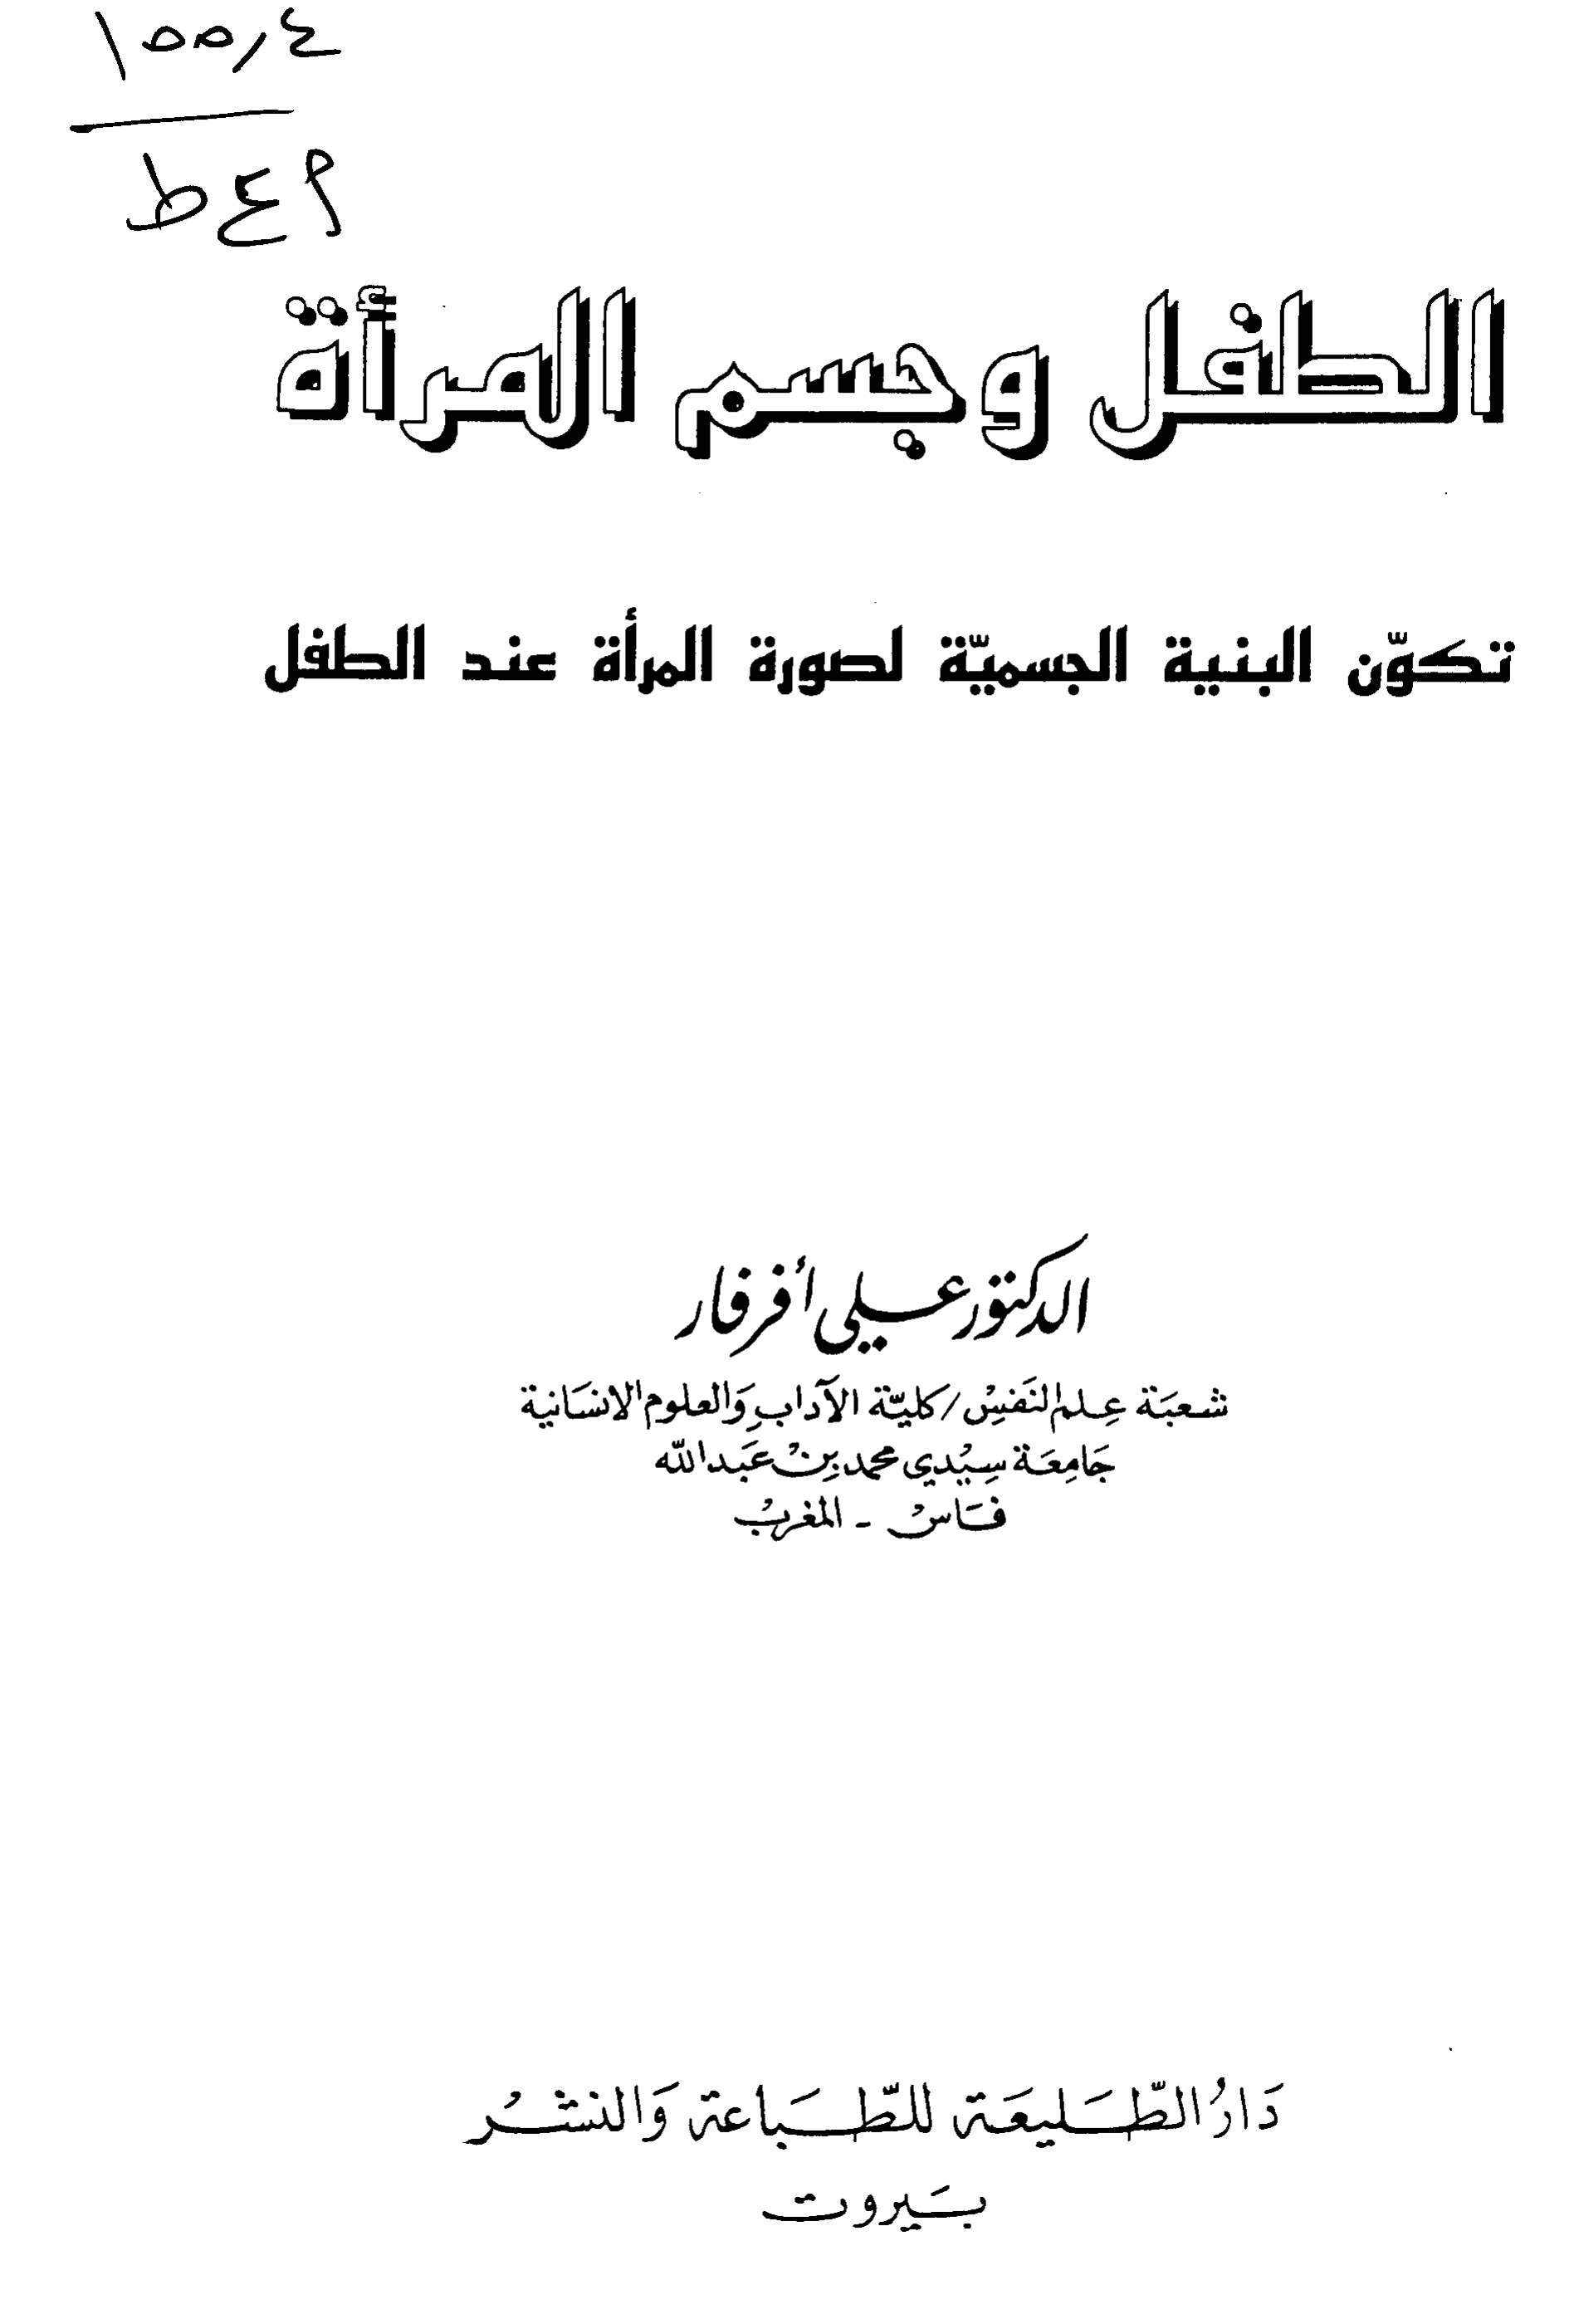 ١٥٥,٤
ط ع ٩
الطفل وجسم المرأة
تكوّن البنية الجسميّة لصورة المرأة عند الطفل
الدكتور علي أفرفار
شعبَة عِلم النَفسْ / كليّة الآدابِ وَالعلوم الانسَانية
جَامِعَة سِيْدي محمد بِنْ عَبد الله
فَاسْ - المغربْ
دَارُ الطّليعَة للطّبَاعة وَالنشرْ
بَيروت